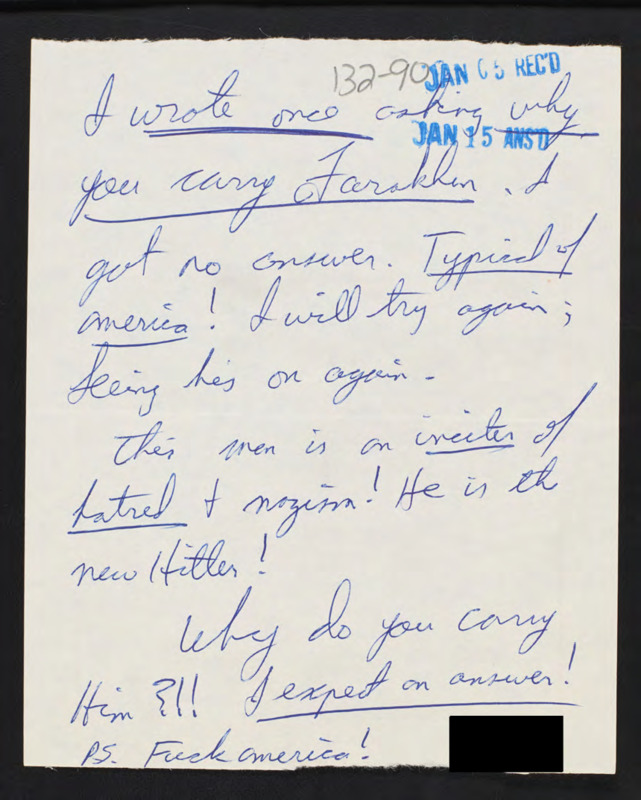 132-90
JAN 05 REC'D
JAN 15 ANS'D
I wrote once asking why
you carry Farakhan. I
got no answer. Typical of
america! I will try again;
seeing his on again -
This man is an inciter of
hatred & nazism! He is the
new Hitler!
Why do you carry
Him ?!! I expect an answer!
PS. Fuck america!